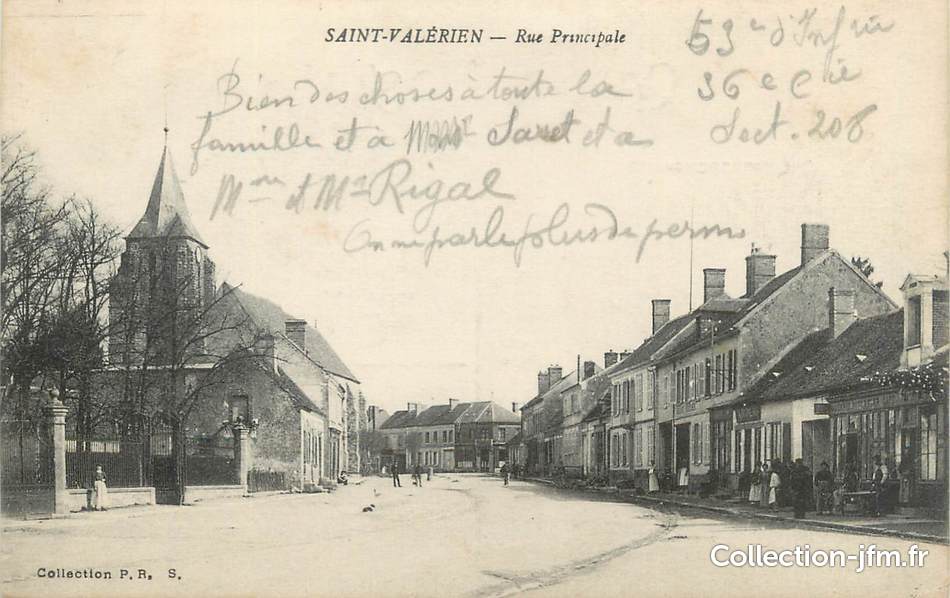 SAINT-VALÉRIEN — Rue Principale
53e d'Infrie
36e Cie
Sect. 206
Bien des choses à toute la
famille et à Mme et a
Mme et Mr Rigal
On ne parle plus de perm
Collection P. R. S.
Collection-jfm.fr